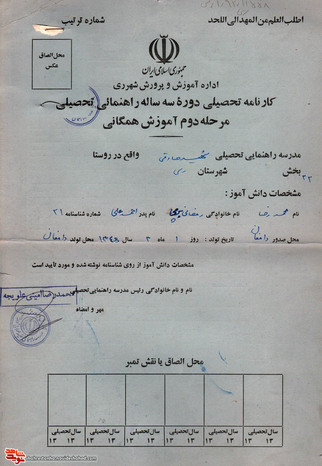 اطلب العلم من المهد الی اللحد
شماره ترتیب
محل الصاق عکس
جمهوری اسلامی ایران
اداره آموزش و پرورش شهرری
کارنامه تحصیلی دورهٔ سه ساله راهنمائی تحصیلی
مرحله دوم آموزش همگانی
مدرسه راهنمایی تحصیلی شهید صادقی واقع در روستا
۲۲ بخش شهرستان ری
مشخصات دانش آموز :
نام محمد رضا نام خانوادگی رمضانی نام پدر شماره شناسنامه ۲۱
محل صدور دامغان تاریخ تولد : روز ۱ ماه ۲ سال ۱۳۴۸ محل تولد دامغان
مشخصات دانش آموز از روی شناسنامه نوشته شده و مورد تایید است
نام و نام خانوادگی رئیس مدرسه راهنمایی تحصیلی
مهر و امضاء
محمدرضا امینی علویجه
محل الصاق یا نقش تمبر
سال تحصیلی سال تحصیلی سال تحصیلی سال تحصیلی سال تحصیلی سال تحصیلی
۱۳ ۱۳ ۱۳ ۱۳ ۱۳ ۱۳ ۱۳ ۱۳ ۱۳ ۱۳ ۱۳ ۱۳